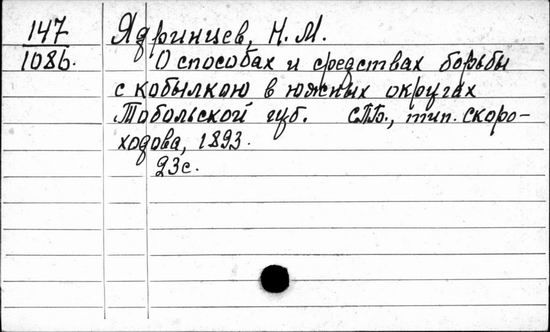 147
1086.
Ядринцев, Н. М.
О способах и средствах борьбы
с кобылкою в южных округах
Тобольской губ. СПБ., тип. скоро-
ходова, 1893.
23с.